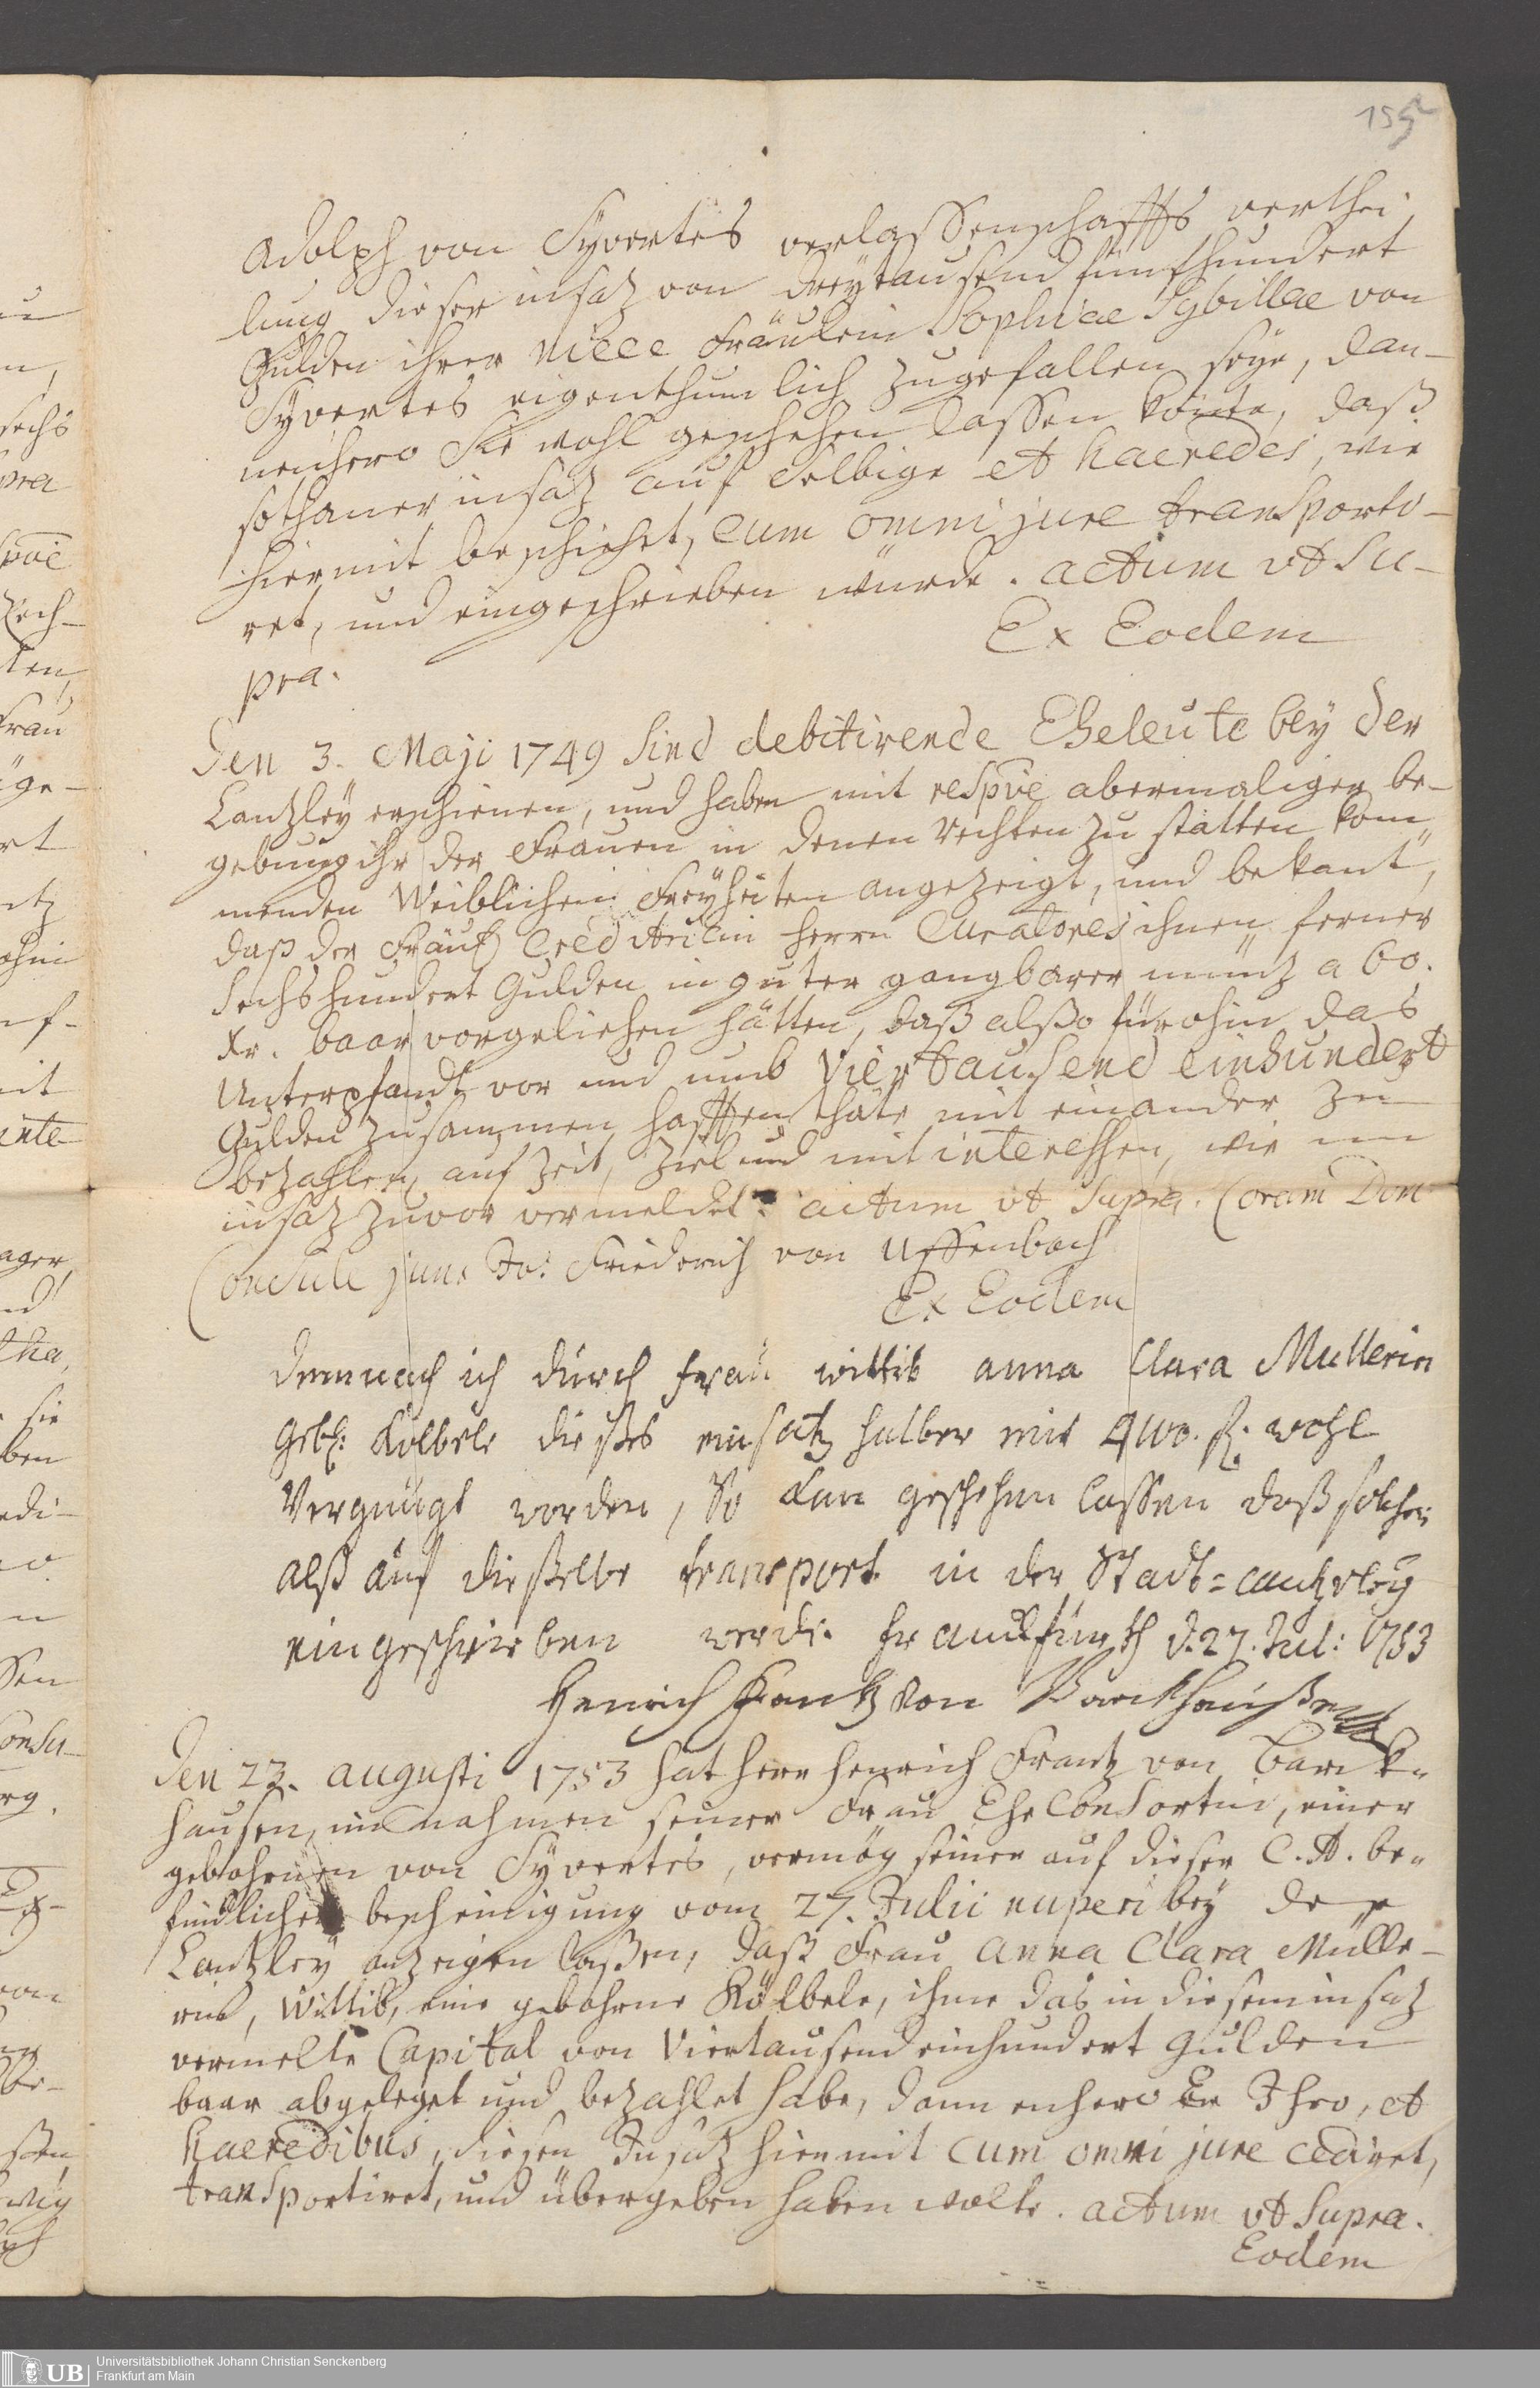 155
Adolph von Syvertes verlassenschaffts verthei„
lung dieser insatz von dreytausend fünfhundert
Gulden ihrer niece Fräulein Sophiae Sybillae von
Syvertes eigenthumlich zugefallen seye, dan-
nenhero Sie wohl geschehen lassen könte, daß
sothaner insatz auf Selbige et haeredes, wie
hiermit beschiehet, cum omni jure transporti-
ret, und eingeschrieben würde. actum ut su-
pra.
Ex Eodem
Den 3. Maji 1749 sind debitirende Eheleute bey der
Cantzley erschienen, und haben mit respve abermaliger be-
gebung ihr der Frauen in denen rechten zu statten kom„
menden Weiblichen Freyheiten angezeigt, und bekant,
daß der Fräul. Creditricin herrn Curatores ihnen ferner
Sechshundert Gulden in guter gangbarer müntz a 60.
Xr. baar vorgeliehen hätten, daß alßo fürohin das
Unterpfandt vor und umb Viertausend einhundert
Gulden zusammen hafften thäte mit einander zu
bezahlen, auf Zeit, Ziel und mit interessen, wie im
insatz zuvor vermeldet. actum ut supra. Coram Dom
Consule jun. Jo: Friederich von Uffenbach
Ex Eodem
Demnach ich durch frau wittib anna Clara Mullerin
Geb: Kolbele dießes einsatz halber mit 4100. fl. wohl
Vergnügt worden, So kan geschehen lassen daß solcher
alß auf dießelbe transport in der Stadt=cantzeley
eingeschrieben werde. franckfurth d. 27. Jul: 1753
Henrich Frantz von Barckhaußen
Den 23. augusti 1753 hat herr Henrich Frantz von Barck-
hausen, im nahmen seiner Frau EheConsortin, einer
gebohrnen von Syvertes, vermög seiner auf dieser C. A. be-
findlichen bescheinigung vom 27. Julii nuperi bey der
Cantzley anzeigen laßen, daß Frau Anna Clara Mülle-
rin, Wittib, eine gebohrne Kölbele, ihme das in diesem insatz
vermelte Capital von Viertausend einhundert Gulden
baar abgeleget und bezahlet habe, dannenhero Er Ihro, et
haeredibus, diesen Insatz hiermit cum omni jure cediret,
transportiret, und übergeben haben wolte. actum ut supra.
Eodem
UB
Universitätsbibliothek Johann Christian Senckenberg
Frankfurt am Main